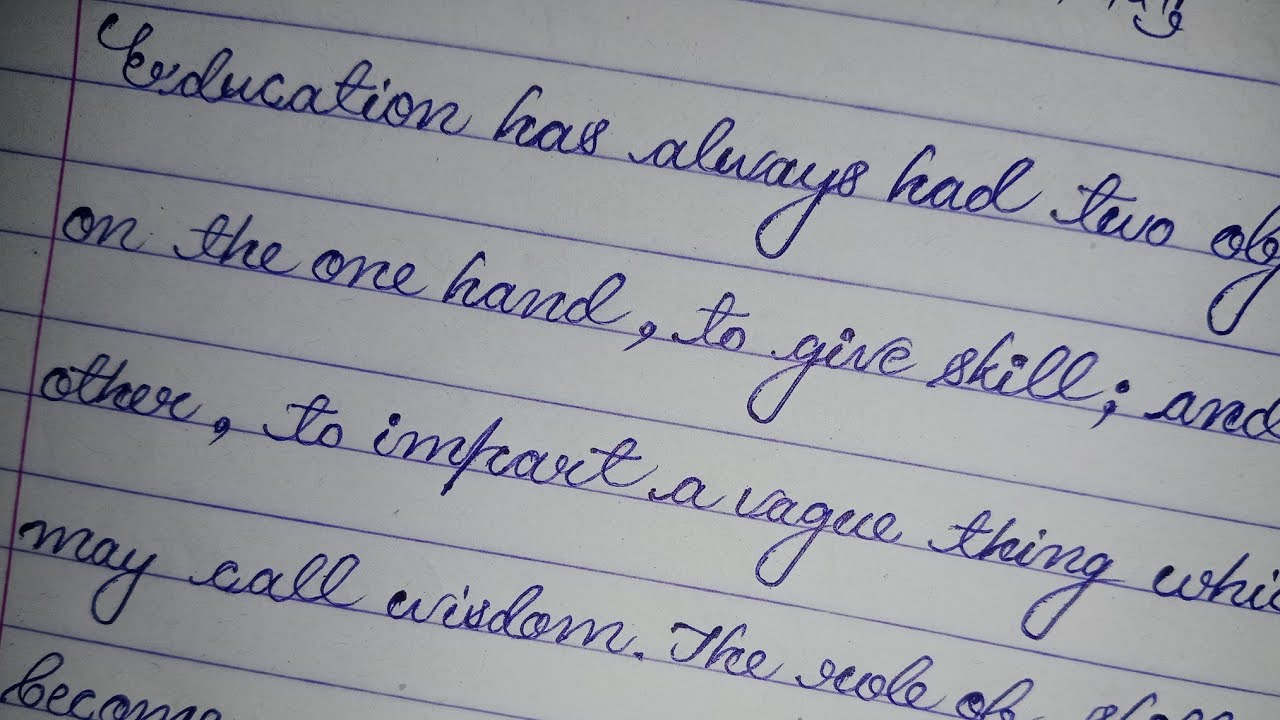 Education has always had two obj
on the one hand, to give skill; and
other, to impart a vague thing whi
may call wisdom. The role of
become